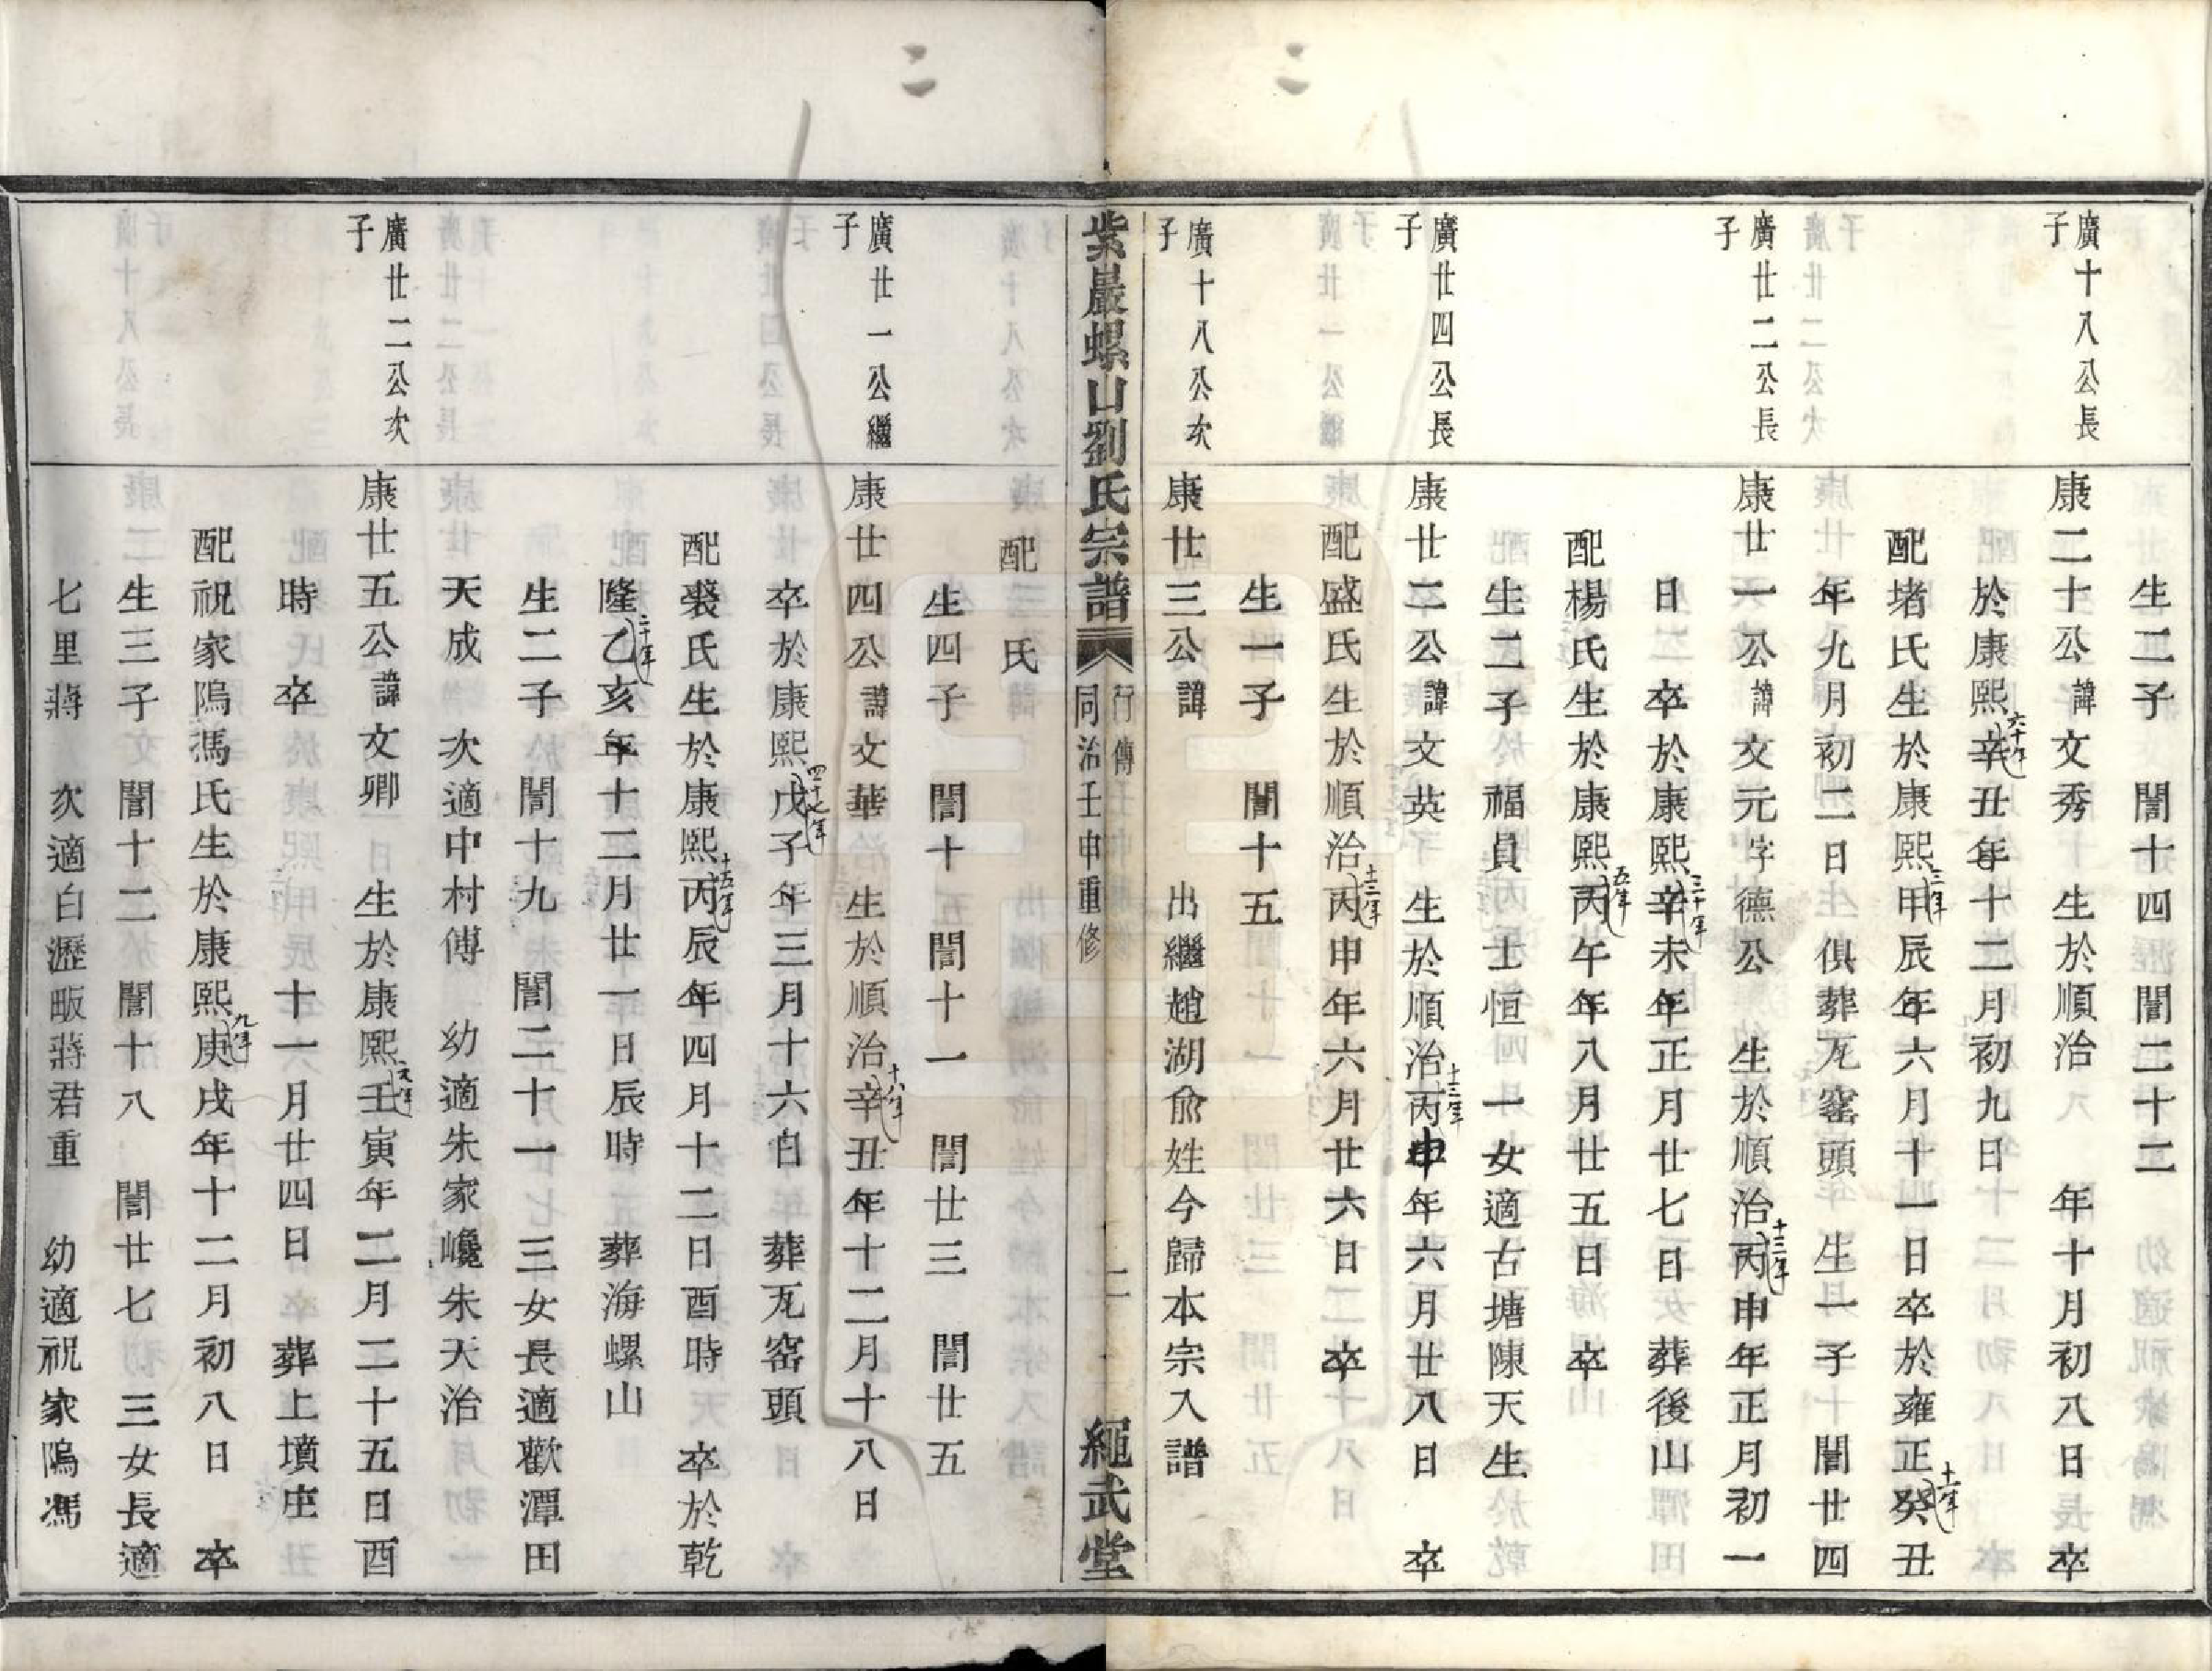 二
生二子　誾十四誾二十二
廣十八公長子
康二十公諱文秀　生於順治　年十月初八日　卒
於康熙辛丑年十二月初九日
六十年
配堵氏生於康熙甲辰年六月十一日卒於雍正癸丑
三年
十一年
年九月初二日　俱葬瓦窑頭　生一子　誾廿四
廣廿二公長子
康廿一公諱文元字德公　生於順治丙申年正月初一
十三年
日　卒於康熙辛未年正月廿七日　葬後山
三十年
配楊氏生於康熙丙午年八月廿五日　卒
五年
生二子福員　士恒　一女適古塘陳天生
廣廿四公長子
康廿二公諱文英　生於順治丙申年六月廿八日　卒
十三年
配盛氏生於順治丙申年六月廿六日　卒
十三年
生一子　誾十五
廣十八公次子
康廿三公諱　　出繼趙湖俞姓今歸本宗入譜
紫巖螺山劉氏宗譜
行傳
同治壬申重修
二
繩武堂
二
配　氏
生四子　誾十　誾十一　誾廿三　誾廿五
廣廿一公繼子
康廿四公諱文華　生於順治辛丑年十二月十八日
十八年
卒於康熙戊子年三月十六日　葬瓦窑頭
四十七年
配裘氏生於康熙丙辰年四月十二日酉時　卒於乾
十五年
隆乙亥年十二月廿一日辰時　葬海螺山
二十年
生二子　誾十九　誾二十一　三女長適歡潭田
天成　次適中村傅　幼適朱家巉朱天治
廣廿二公次子
康廿五公諱文卿　生於康熙壬寅年二月二十五日酉
元年
時　卒　　十一月廿四日　葬上墳庄
配祝家隖馮氏生於康熙庚戌年十二月初八日　卒
九年
生三子　誾十二　誾十八　誾廿七　三女長適
七里蔣　次適白瀝畈蔣君重　幼適祝家隖馮